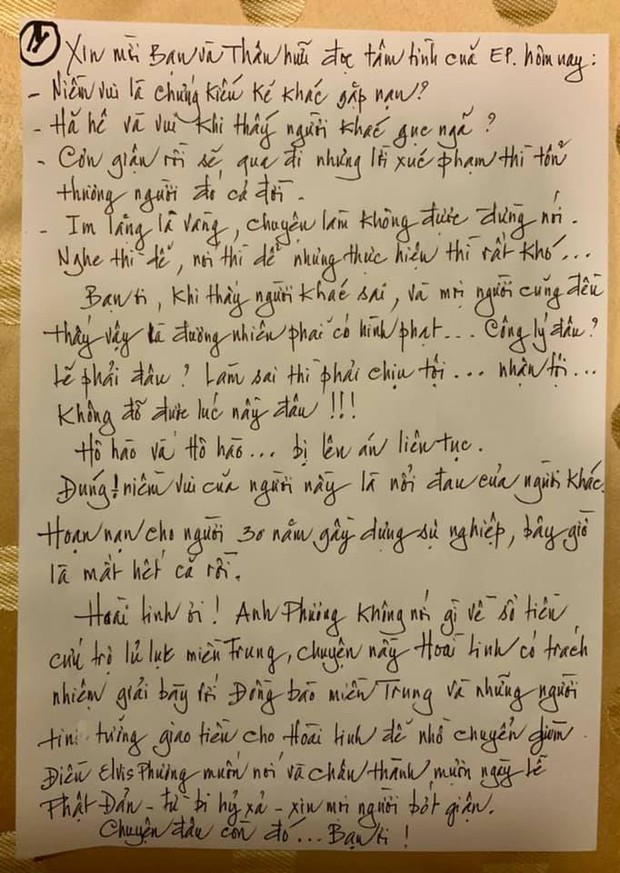 14
Xin mời Bạn và Thân hữu đọc tâm tình của EP. hôm nay:
- Niềm vui là chứng kiến kẻ khác gặp nạn?
- Hả hê và vui khi thấy người khác gục ngã?
- Cơn giận rồi sẽ qua đi nhưng lời xúc phạm thì tổn
thương người đó cả đời.
- Im lặng là vàng, chuyện làm không được đừng nói.
Nghe thì dễ, nói thì dễ nhưng thực hiện thì rất khó...
Bạn ơi, khi thấy người khác sai, và mọi người cũng đều
thấy vậy là đương nhiên phải có hình phạt... Công lý đâu?
Lẽ phải đâu? Làm sai thì phải chịu tội... nhận tội...
không đỡ được lúc này đâu!!!
Hô hào và Hô hào... bị lên án liên tục.
Đúng! niềm vui của người này là nỗi đau của người khác.
Hoạn nạn cho người 30 năm gầy dựng sự nghiệp, bây giờ
là mất hết cả rồi.
Hoài Linh ơi! Anh Phương không nói gì về số tiền
cứu trợ lũ lụt miền Trung, chuyện này Hoài Linh có trách
nhiệm giải bày với Đồng bào miền Trung và những người
tin tưởng giao tiền cho Hoài Linh để nhờ chuyển giùm.
Điều Elvis Phương muốn nói và chân thành mượn ngày lễ
Phật Đản - từ bi hỷ xả - xin mọi người bớt giận.
Chuyện đâu còn đó... Bạn ơi!